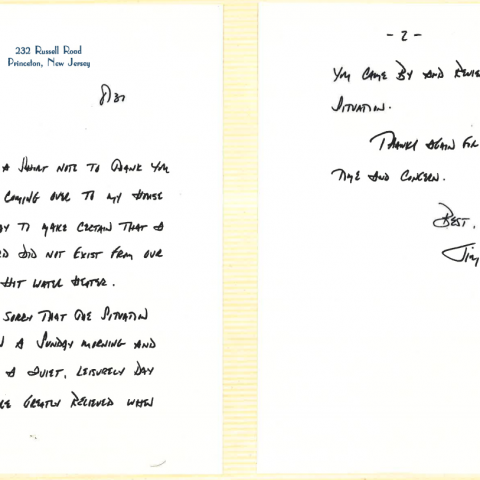 232 Russell Road
Princeton, New Jersey
8/31
A SHORT NOTE TO THANK YOU
COMING OVER TO MY HOUSE
TO MAKE CERTAIN THAT A
DID NOT EXIST FROM OUR
HOT WATER HEATER.
SORRY THAT OUR SITUATION
A SUNDAY MORNING AND
A QUIET, LEISURELY DAY
GREATLY RELIEVED WHEN
- 2 -
YOU CAME BY AND
SITUATION.
THANKS AGAIN FOR
TIME AND CONCERN.
BEST,
Jim